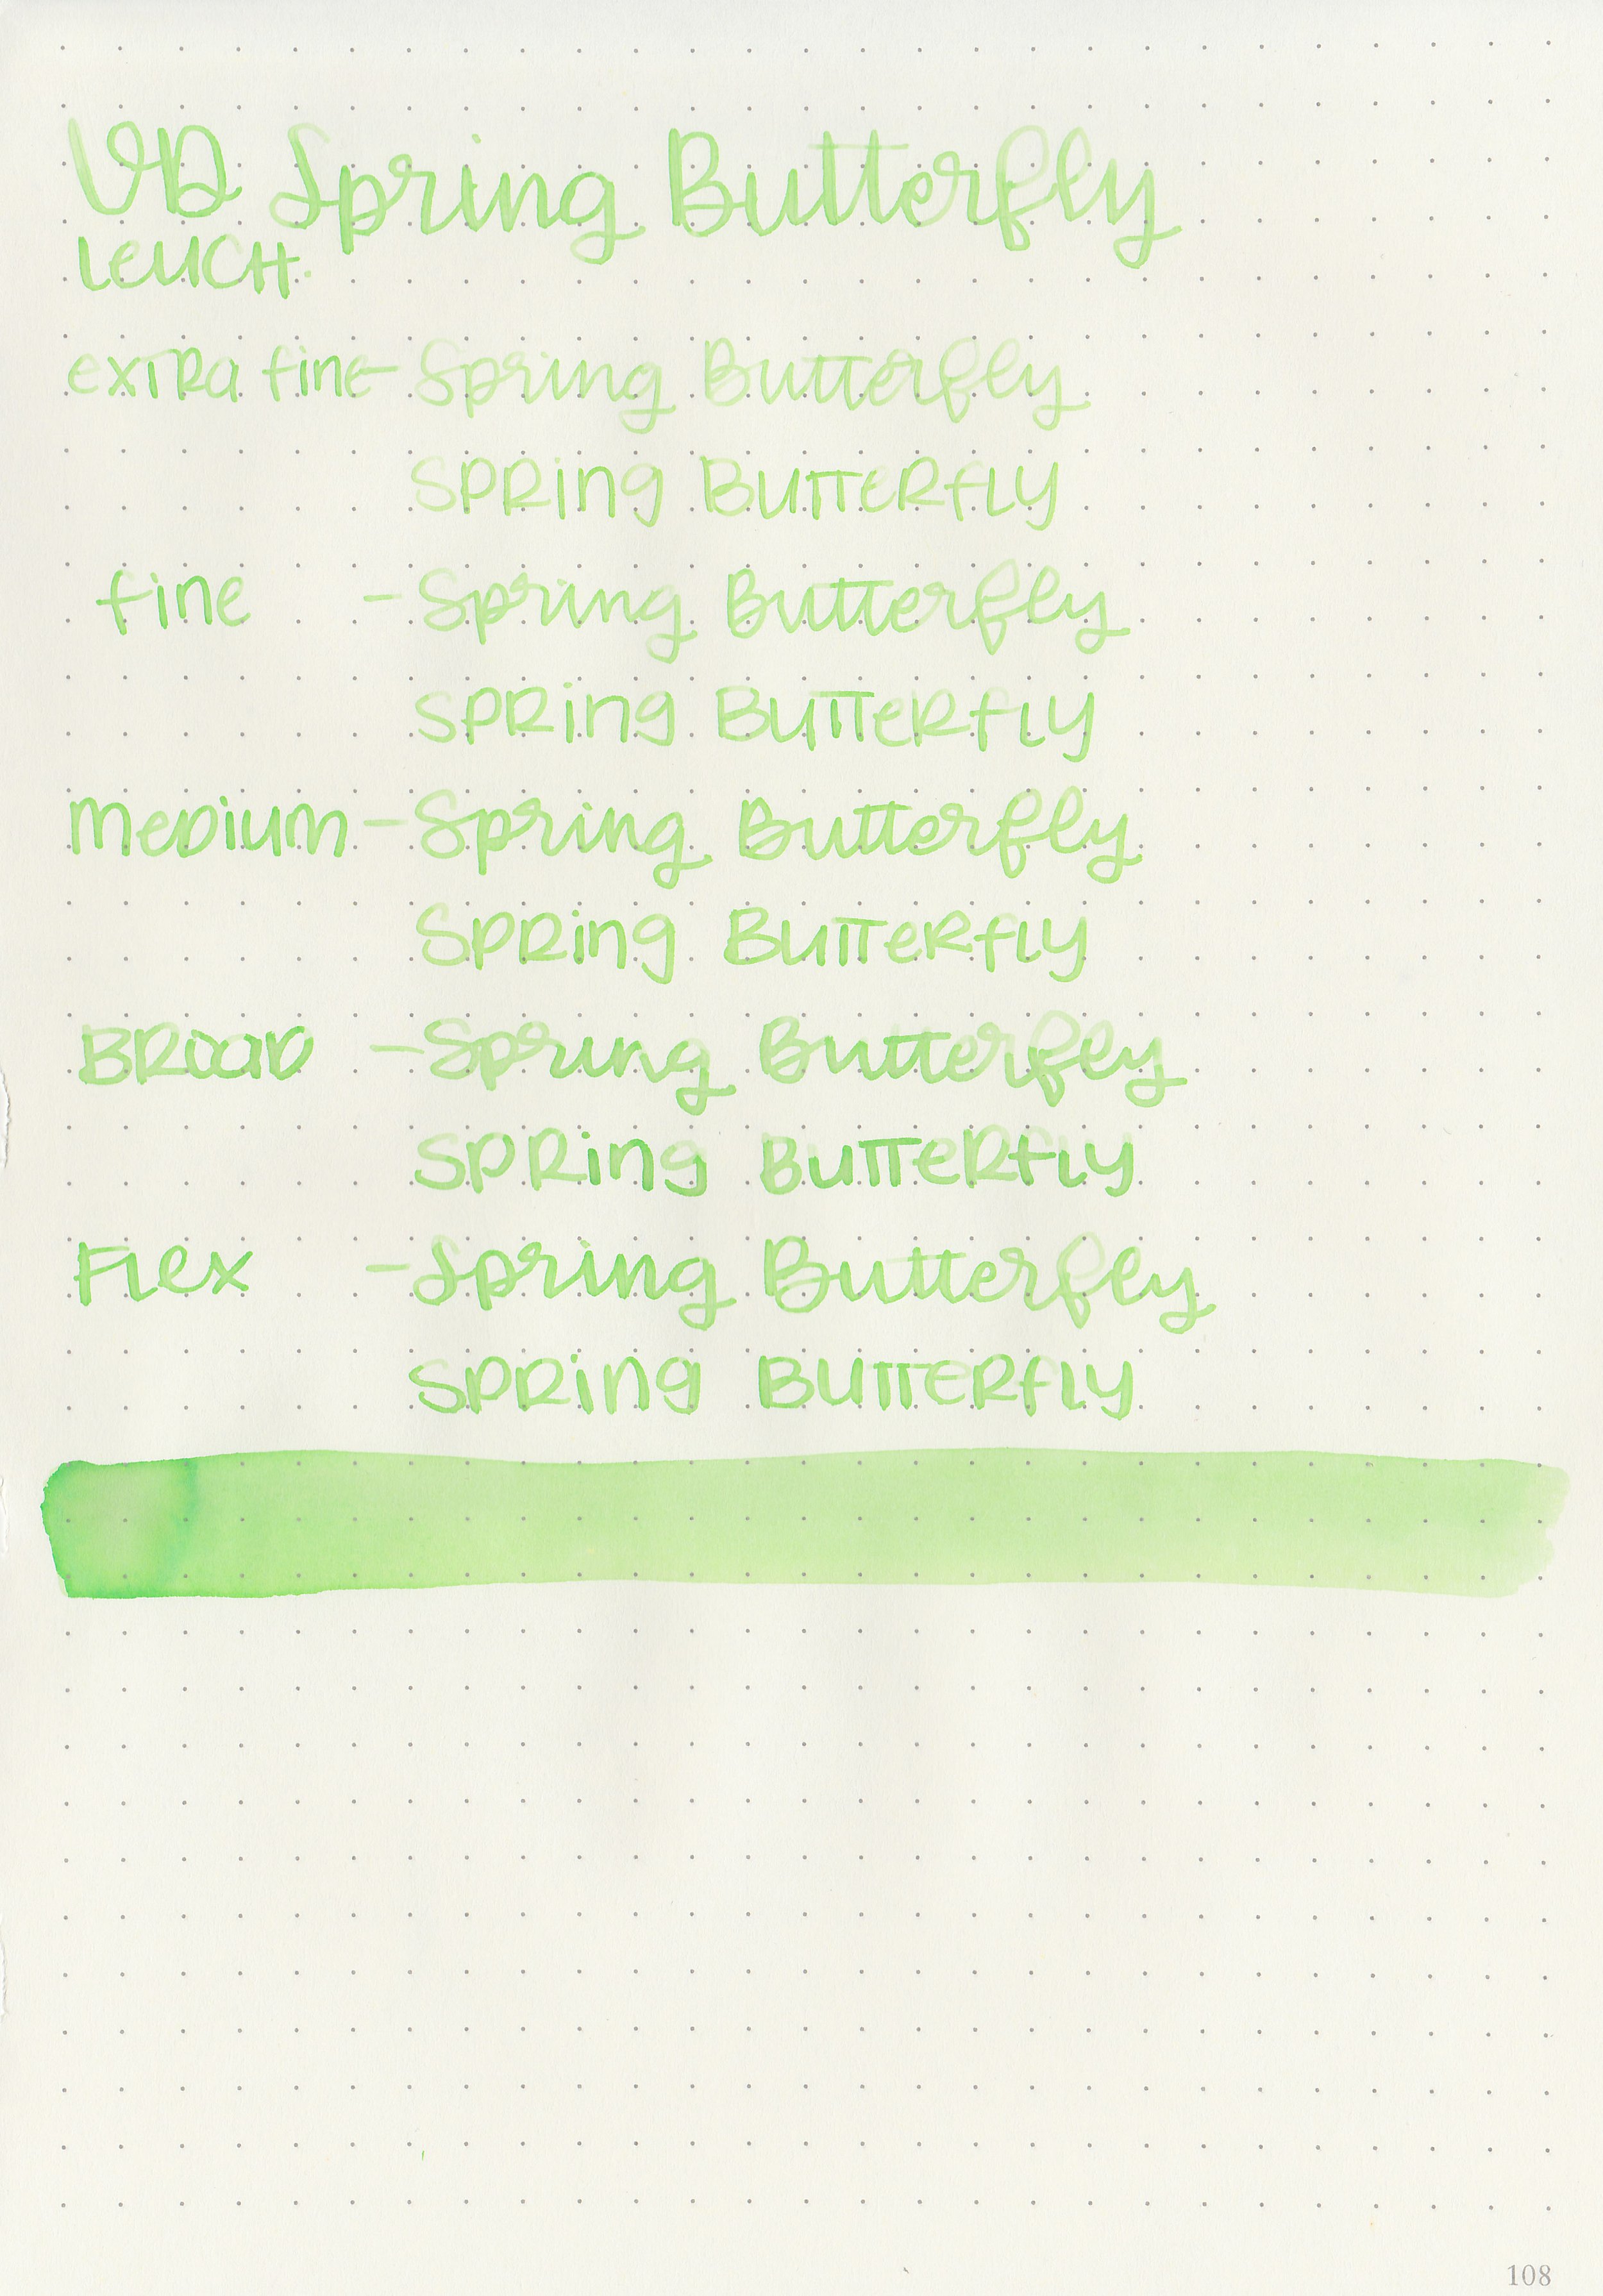 VD Spring Butterfly
Leuch.
extra fine - Spring Butterfly
Spring Butterfly
fine - Spring Butterfly
Spring Butterfly
Medium - Spring Butterfly
Spring Butterfly
Broad - Spring Butterfly
Spring Butterfly
Flex - Spring Butterfly
Spring Butterfly
108